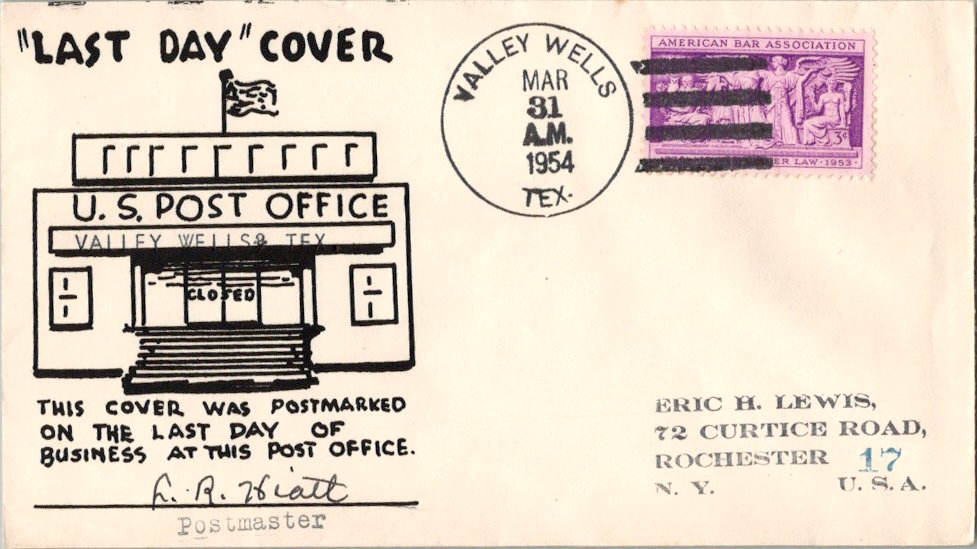 "LAST DAY" COVER
U. S. POST OFFICE
VALLEY WELLS, TEX
CLOSED
THIS COVER WAS POSTMARKED
ON THE LAST DAY OF
BUSINESS AT THIS POST OFFICE.
L. R. Hiatt
Postmaster
VALLEY WELLS
MAR
31
A.M.
1954
TEX.
AMERICAN BAR ASSOCIATION
3¢
ER LAW · 1953 ·
ERIC H. LEWIS,
72 CURTICE ROAD,
ROCHESTER 17
N. Y. U. S. A.